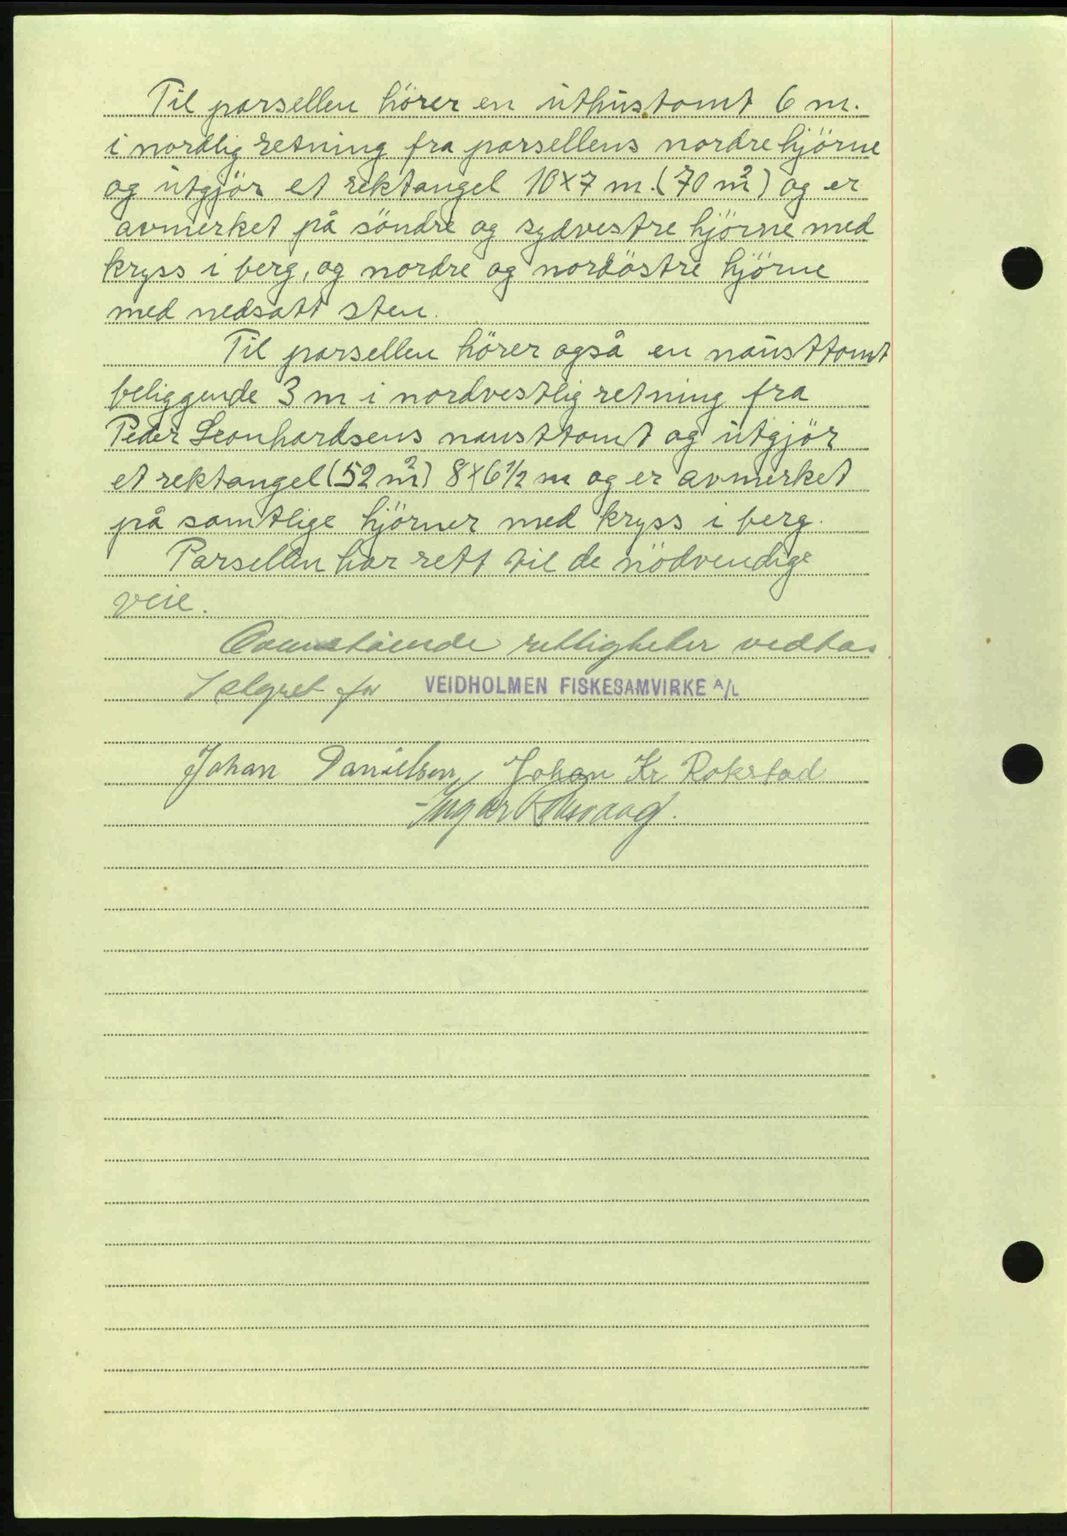 Til parsellen hörer en uthustomt 6 m.
i nordlig retning fra parsellens nordre hjörne
og utgjör et rektangel 10x7 m. (70 m²) og er
avmerket på söndre og sydvestre hjörne med
kryss i berg, og nordre og nordöstre hjörne
med nedsatt sten.
Til parsellen hörer også en nausttomt
beliggende 3 m i nordvestlig retning fra
Peder Leonhardsens nausttomt og utgjör
et rektangel (52 m²) 8x6½ m og er avmerket
på samtlige hjörner med kryss i berg.
Parsellen har rett til de nödvendige
veie.
Ovenstående rettigheter vedtas
Selgret for VEIDHOLMEN FISKESAMVIRKE A/L
Johan Danielsen, Johan Kr Rokstad
Ingvar